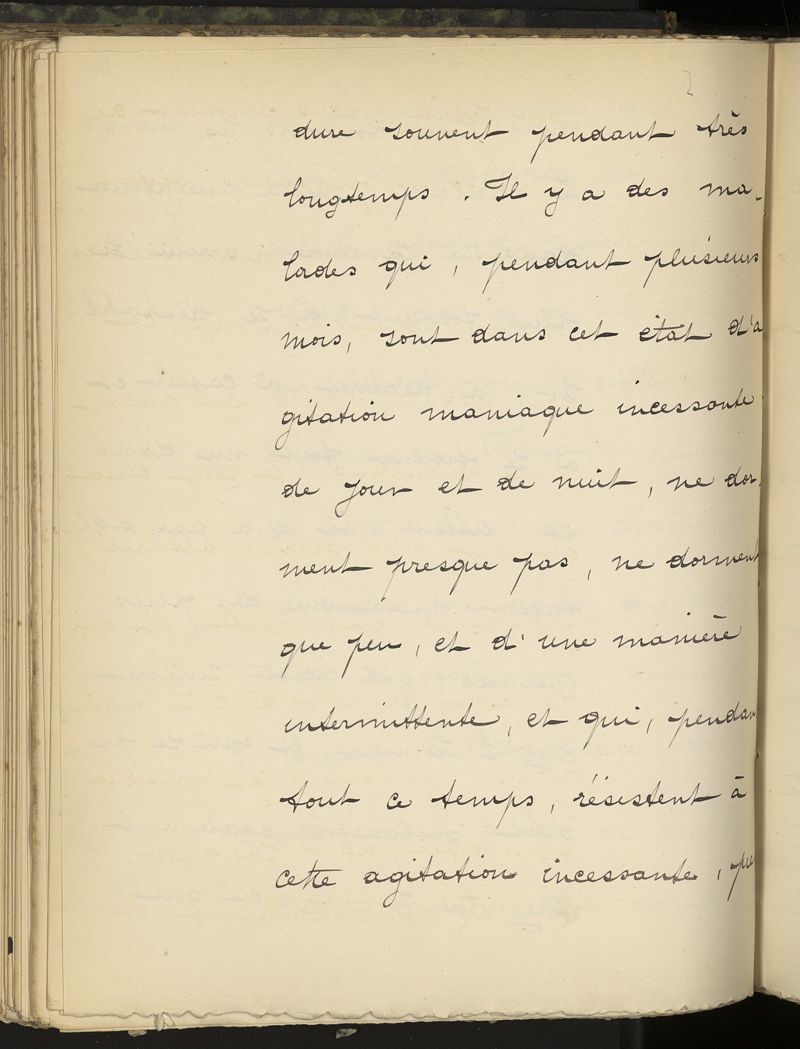 dure souvent pendant très
longtemps. Il y a des ma-
lades qui, pendant plusieurs
mois, sont dans cet état d'a
gitation maniaque incessante
de jour et de nuit, ne dor-
ment presque pas, ne dorment
que peu, et d'une manière
intermittente, et qui, pendan
tout ce temps, résistent à
cette agitation incessante,